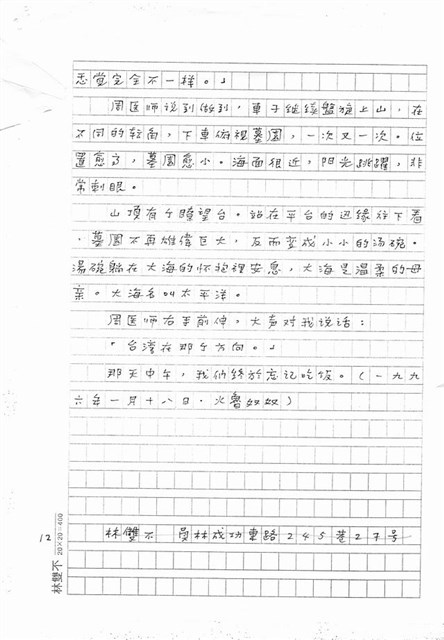 悉觉完全不一样。」
周医师说到做到，车子继续盤旋上山，在
不同的轉角，下車俯視墓園，一次又一次。位
置愈高，墓園愈小。海面很近，阳光跳躍，非
常刺眼。
山顶有个瞭望台。站在平台的边缘往下看
，墓園不再雄偉巨大，反而变成小小的汤碗。
湯碗躺在大海的怀抱裡安息，大海是温柔的母
亲。大海名叫太平洋。
周医师右手前伸，大声对我说话：
「台湾在那个方向。」
那天中午，我们終於忘记吃饭。（一九九
六年一月十八日·火魯奴奴）
林雙不 員林成功東路245巷27号
12
林雙不 20×20=400